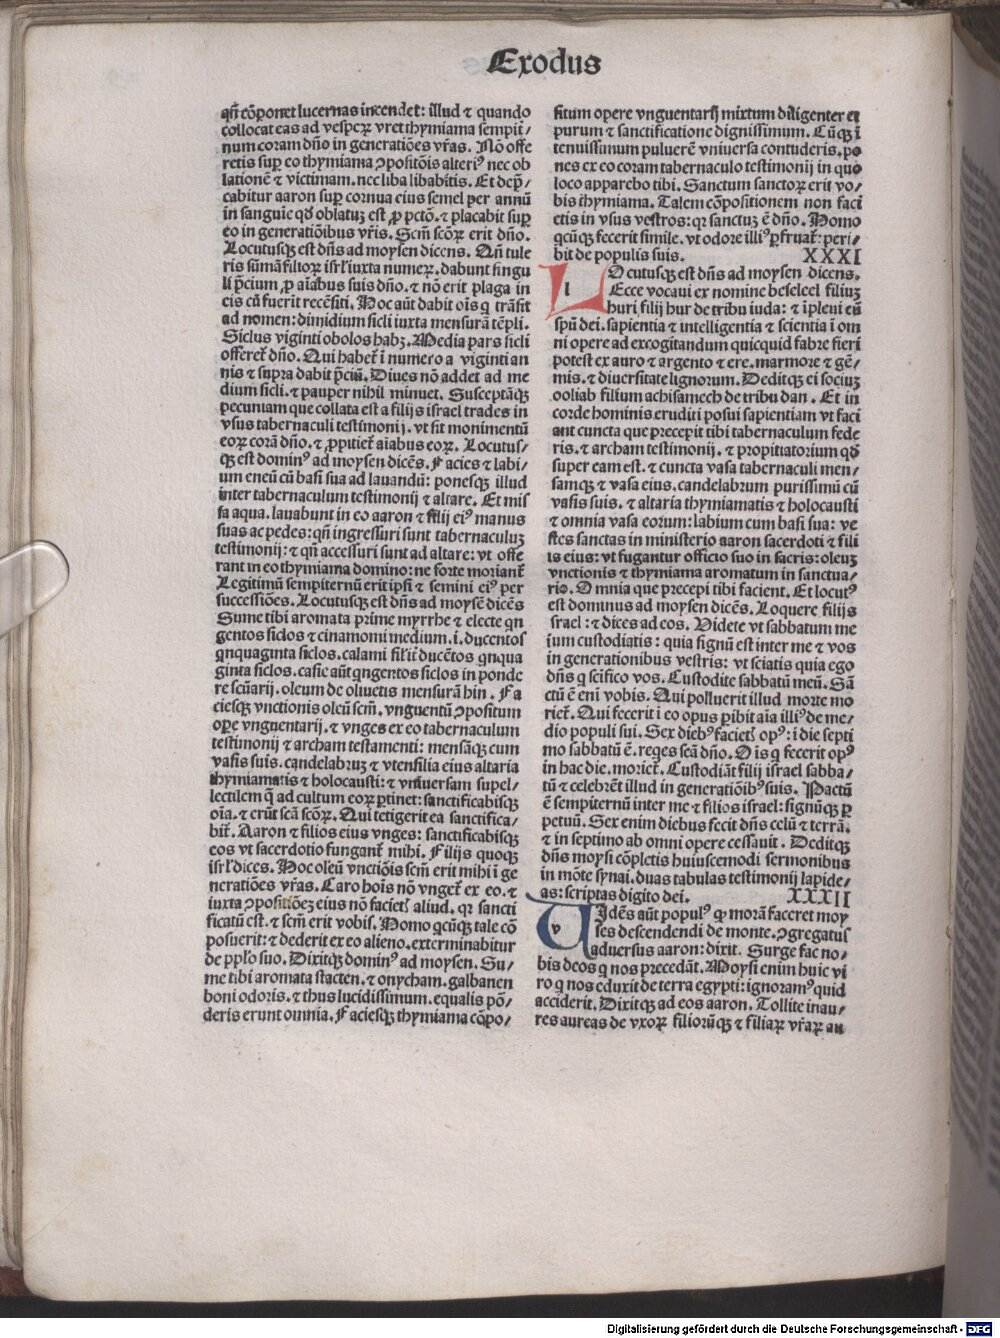 Exodus
qñ cõponet lucernas incendet: illud ⁊ quando
collocat eas ad vesperꝫ vret thymiama sempit/
num coram dño in generatiões vr̃as. Nõ offe
retis sup eo thymiama ꝯpositõis alteriꝰ nec ob
lationẽ ⁊ victimam. nec liba libabitis. Et dep̃/
cabitur aaron sup cornua eius semel per annũ
in sanguie qđ oblatuꝫ est ꝓ pctõ. ⁊ placabit sup
eo in generatiõibus vr̃is. Scm̃ scõꝝ erit dño.
Locutusqꝫ est dñs ad moysen dicens. Qñ tule
ris sũmã filioꝝ isrl̃ iuxta numeꝝ. dabunt singu
li p̃cium ꝓ aĩabus suis dño. ⁊ nõ erit plaga in
eis cũ fuerit recẽsiti. Hoc aũt dabit oĩs q trãsit
ad nomen: dimidium sicli iuxta mensurã tẽpli.
Siclus viginti obolos habꝫ. Media pars sicli
offeret̃ dño. Qui habet̃ ĩ numero a viginti an
nis ⁊ supra dabit p̃ciũ. Diues nõ addet ad me
dium sicli. ⁊ pauper nihil minuet. Susceptãqꝫ
pecuniam que collata est a filijs israel trades in
vsus tabernaculi testimonij. vt sit monimentũ
eoꝝ corã dño. ⁊ ꝓpitiet̃ aiabus eoꝝ. Locutus/
qꝫ est dominꝰ ad moysen dicẽs. Facies ⁊ labi/
um eneũ cũ basi sua ad lauandũ: ponesqꝫ illud
inter tabernaculum testimonij ⁊ altare. Et mis
sa aqua. lauabunt in eo aaron ⁊ filij eiꝰ manus
suas ac pedes: qñ ingressuri sunt tabernaculuꝫ
testimonij: ⁊ qñ accessuri sunt ad altare: vt offe
rant in eo thymiama domino: ne forte moriant̃
Legitimũ sempiternũ erit ipsi ⁊ semini eiꝰ per
successiões. Locutusqꝫ est dñs ad moysẽ dicẽs
Sume tibi aromata prime myrrhe ⁊ electe qn
gentos siclos ⁊ cinamomi medium. i. ducentos
qnquaginta siclos. calami sil̃it ducẽtos qnqua
ginta siclos. casie aũt qngentos siclos in ponde
re scũarij. oleum de oliuetis mensurã hin. Fa
ciesqꝫ vnctionis oleũ scm̃. vnguentũ ꝯpositum
oꝑe vnguentarij. ⁊ vnges ex eo tabernaculum
testimonij ⁊ archam testamenti: mensãqꝫ cum
vasis suis. candelabruꝫ ⁊ vtensilia eius altaria
thymiamatis ⁊ holocausti: ⁊ vniuersam supel/
lectilem q̃ ad cultum eoꝝ ꝑtinet: sanctificabisqꝫ
oĩa. ⁊ erũt scã scõꝝ. Qui tetigerit ea sanctifica/
bit̃. Aaron ⁊ filios eius vnges: sanctificabisqꝫ
eos vt sacerdotio fungant̃ mihi. Filijs quoqꝫ
isrl̃ dices. Hoc oleũ vnctiõis scm̃ erit mihi ĩ ge
neratiões vr̃as. Caro hoĩs nõ vnget̃ ex eo. ⁊
iuxta ꝯpositiõeꝫ eius nõ faciet̃ aliud. qꝛ sancti
ficatũ est. ⁊ scm̃ erit vobis. Homo qcũqꝫ tale cõ
posuerit: ⁊ dederit ex eo alieno. exterminabitur
de pplo suo. Dixitqꝫ dominꝰ ad moysen. Su/
me tibi aromata stacten. ⁊ onycham. galbanen
boni odoris. ⁊ thus lucidissimum. equalis põ/
deris erunt omnia. Faciesqꝫ thymiama cõpo/
situm opere vnguentarij mixtum diligenter et
purum ⁊ sanctificatione dignissimum. Cũqꝫ ĩ
tenuissimum puluerẽ vniuersa contuderis. po
nes ex eo coram tabernaculo testimonij in quo
loco apparebo tibi. Sanctum sanctoꝝ erit vo/
bis thymiama. Talem cõpositionem non faci
etis in vsus vestros: qꝛ sanctuꝫ ẽ dño. Homo
qcũqꝫ fecerit simile. vt odore illiꝰ ꝑfruat̃: peri/
bit de populis suis. XXXI
Locutusqꝫ est dñs ad moysen dicens.
l Ecce vocaui ex nomine beseleel filiuꝫ
huri filij hur de tribu iuda: ⁊ ĩpleui eũ
spũ dei. sapientia ⁊ intelligentia ⁊ scientia ĩ om
ni opere ad excogitandum quicquid fabre fieri
potest ex auro ⁊ argento ⁊ ere. marmore ⁊ gẽ/
mis. ⁊ diuersitate lignorum. Deditqꝫ ei sociuꝫ
ooliab filium achisamech de tribu dan. Et in
corde hominis eruditi posui sapientiam vt faci
ant cuncta que precepit tibi tabernaculum fede
ris. ⁊ archam testimonij. ⁊ propitiatorium qđ
super eam est. ⁊ cuncta vasa tabernaculi men/
samqꝫ ⁊ vasa eius. candelabrum purissimũ cũ
vasis suis. ⁊ altaria thymiamatis ⁊ holocausti
⁊ omnia vasa eorum: labium cum basi sua: ve
stes sanctas in ministerio aaron sacerdoti ⁊ fili
is eius: vt fugantur officio suo in sacris: oleuꝫ
vnctionis ⁊ thymiama aromatum in sanctua/
rio. Omnia que precepi tibi facient. Et locutꝰ
est dominus ad moysen dicẽs. Loquere filijs
israel: ⁊ dices ad eos. Videte vt sabbatum me
ium custodiatis: quia signũ est inter me ⁊ vos
in generationibus vestris: vt sciatis quia ego
dñs q scifico vos. Custodite sabbatũ meũ. Sã
ctũ ẽ enĩ vobis. Qui polluerit illud morte mo
riet̃. Qui fecerit ĩ eo opus ꝑibit aĩa illiꝰ de me/
dio populi sui. Sex diebꝰ faciet̃ opꝰ: ĩ die septi
mo sabbatũ ẽ. reqes scã dño. Oĩs q fecerit opꝰ
in hac die. moriet̃. Custodiãt filij israel sabba/
tũ ⁊ celebrẽt illud in generatiõibꝰ suis. Pactũ
ẽ sempiternũ inter me ⁊ filios israel: signũqꝫ ꝑ
petuũ. Sex enim diebus fecit dñs celũ ⁊ terrã.
⁊ in septimo ab omni opere cessauit. Deditqꝫ
dñs moysi cõpletis huiuscemodi sermonibus
in mõte synai. duas tabulas testimonij lapide/
as: scriptas digito dei. XXXII
Videns aũt populꝰ qꝙ morã faceret moy
v ses descendendi de monte. ꝯgregatus
aduersus aaron: dixit. Surge fac no/
bis deos q nos precedãt. Moysi enim huic vi
ro q nos eduxit de terra egypti: ignoramꝰ quid
acciderit. Dixitqꝫ ad eos aaron. Tollite inau/
res aureas de vxoꝝ filiorũqꝫ ⁊ filiaꝝ vr̃aꝝ au
Digitalisierung gefördert durch die Deutsche Forschungsgemeinschaft - DFG